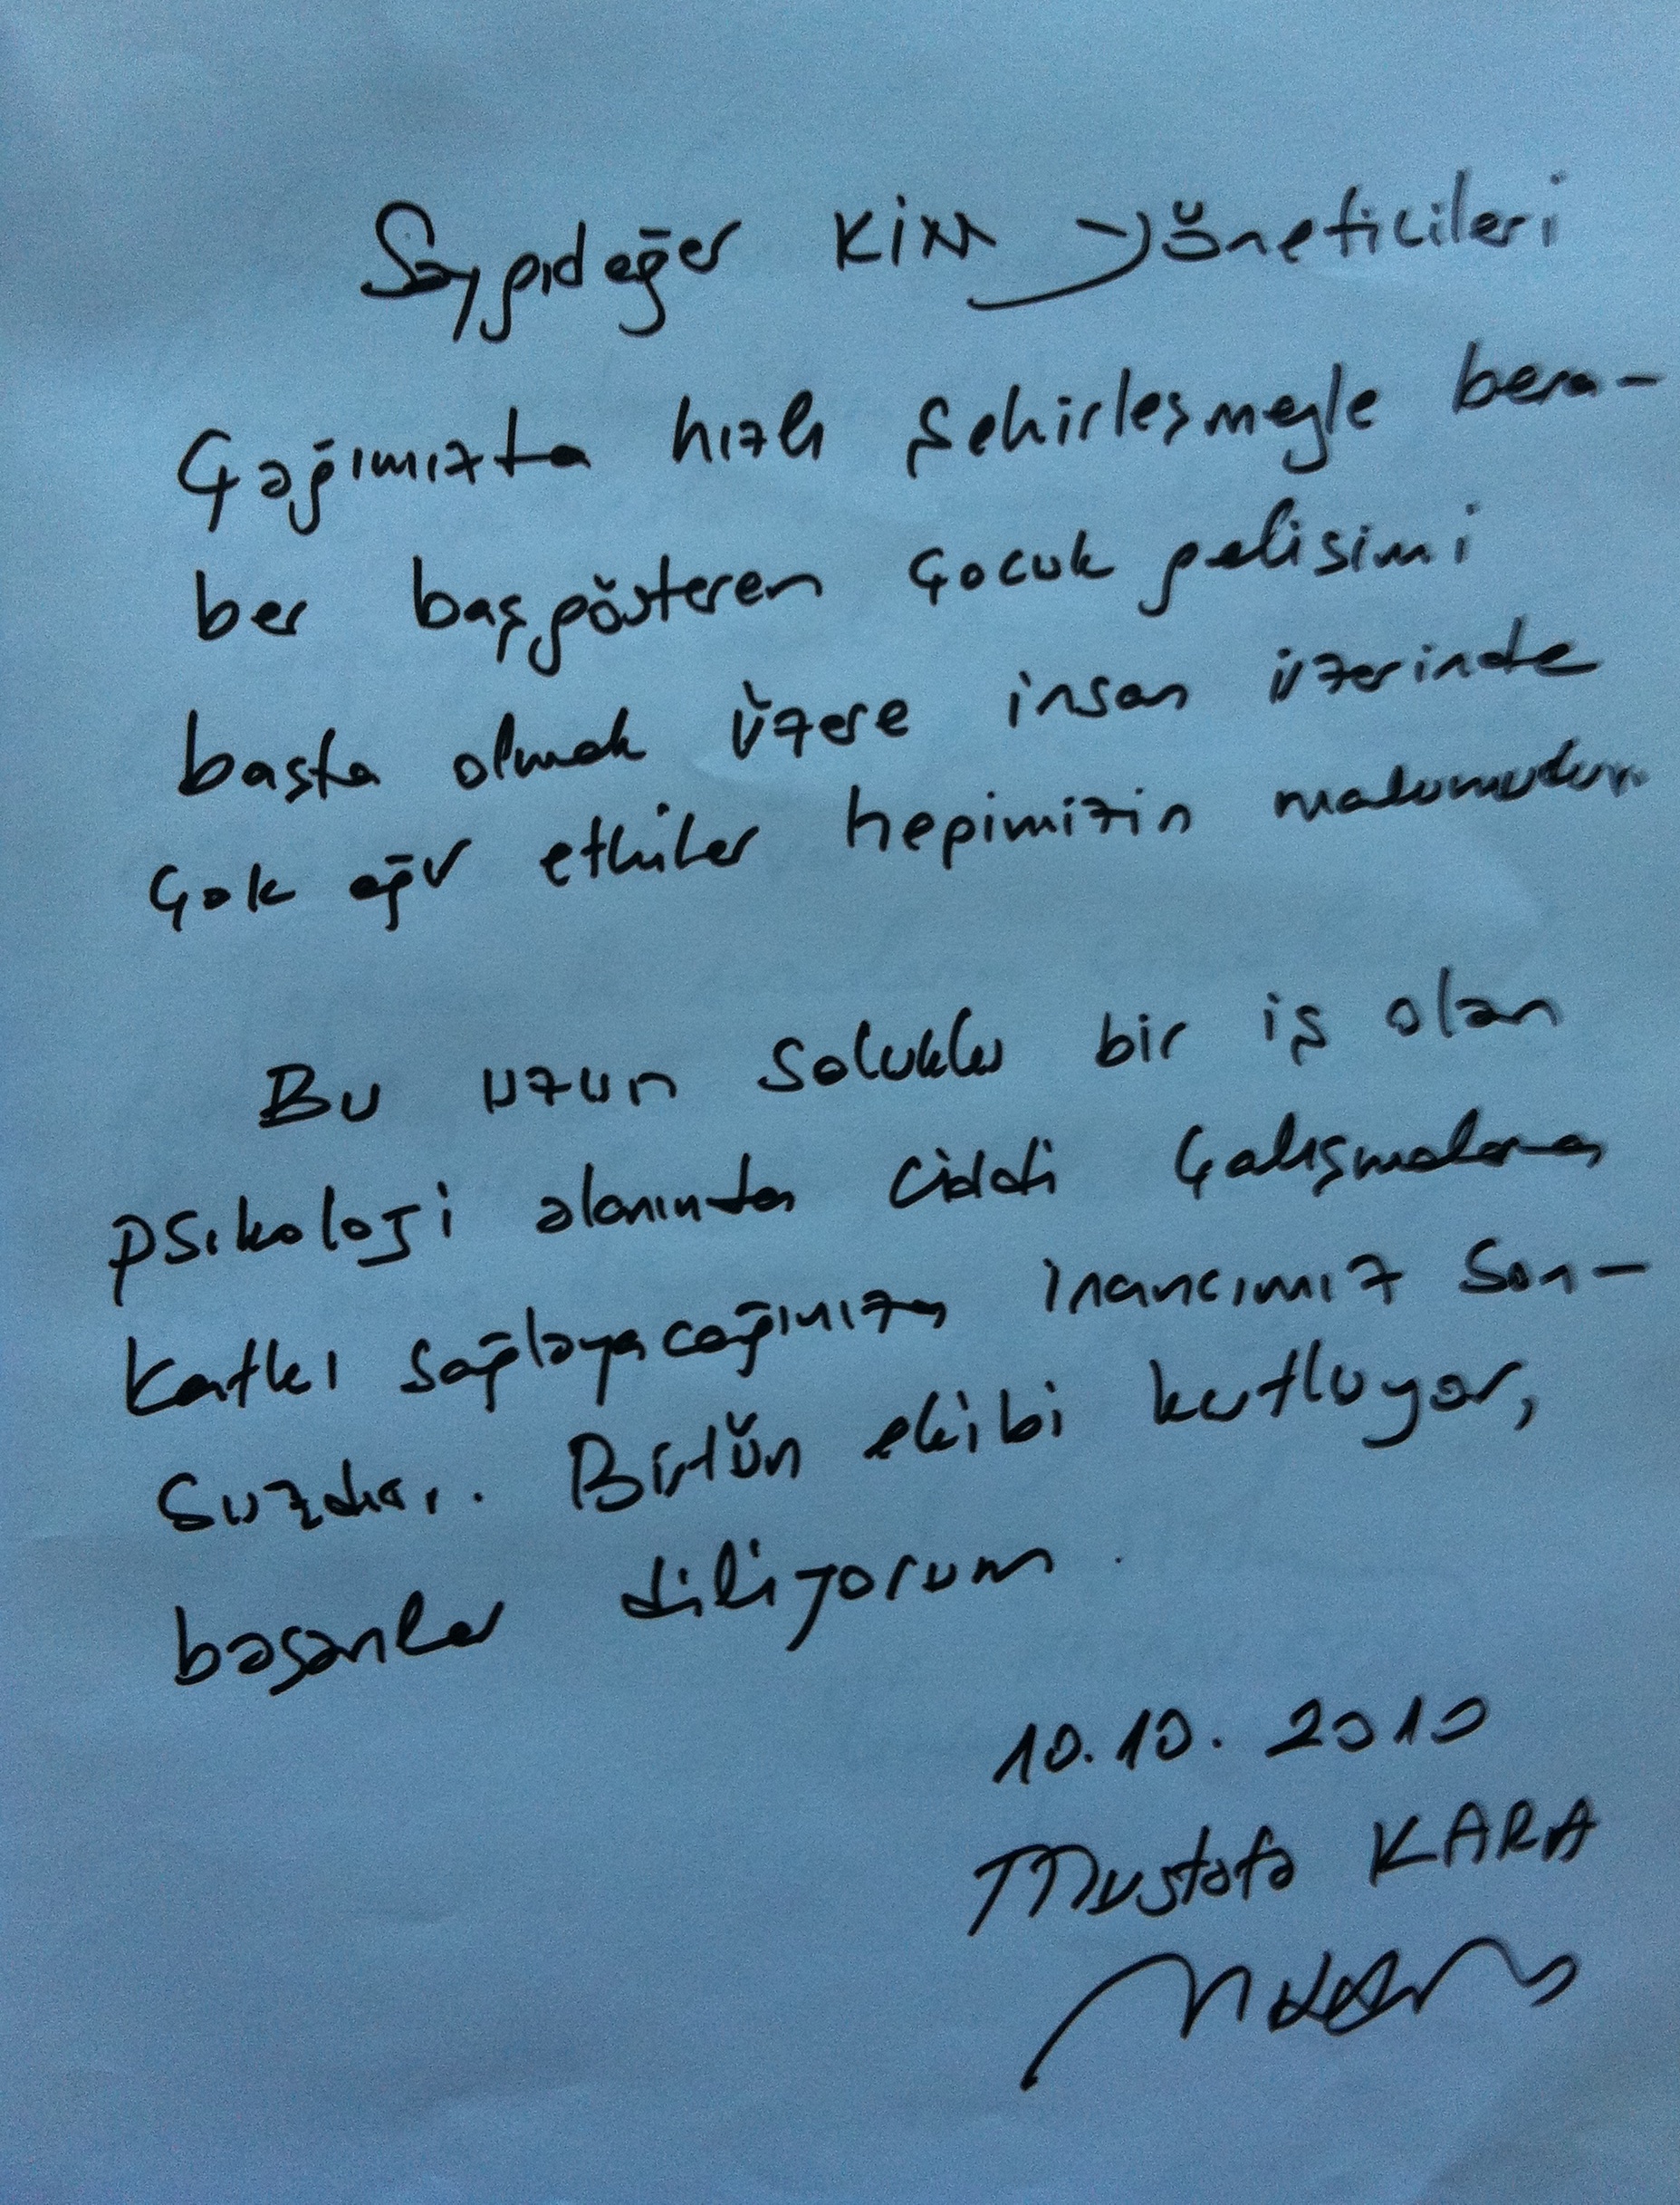 Saygıdeğer KİM yöneticileri
Çağımızda hızlı şehirleşmeyle bera-
ber başgösteren çocuk gelişimi
başta olmak üzere insan üzerinde
çok ağır etkiler hepimizin malumudur.
Bu uzun soluklu bir iş olan
psikoloji alanında ciddi çalışmalara
katkı sağlayacağınıza inancımız son-
suzdur. Bütün ekibi kutluyor,
başarılar diliyorum.
10.10.2010
Mustafa KARA